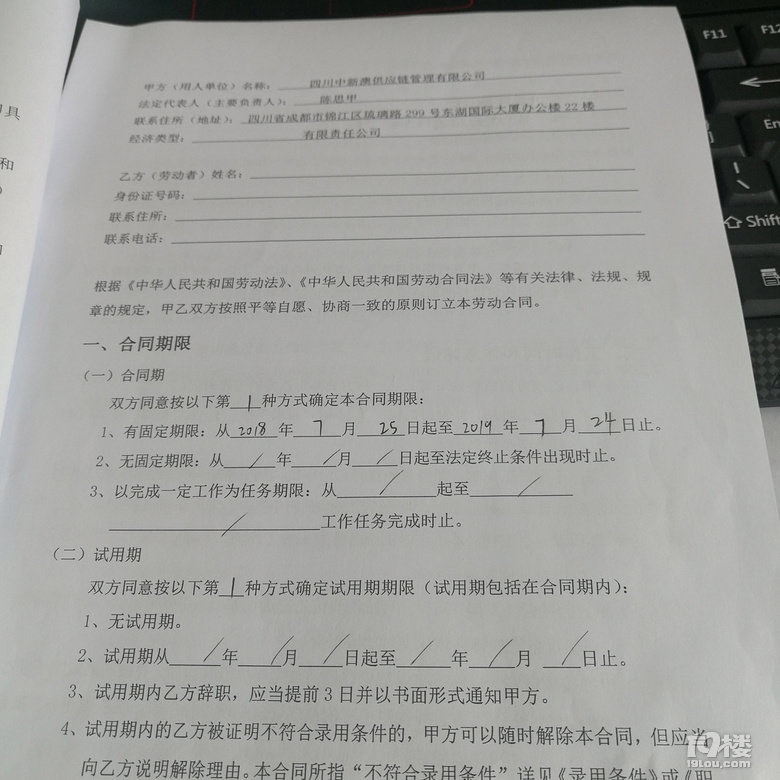 甲方（用人单位）名称： 四川中新澳供应链管理有限公司
法定代表人（主要负责人）： 陈思甲
联系住所（地址）： 四川省成都市锦江区琉璃路 299 号东湖国际大厦办公楼 22 楼
经济类型： 有限责任公司
乙方（劳动者）姓名：
身份证号码：
联系住所：
联系电话：
根据《中华人民共和国劳动法》、《中华人民共和国劳动合同法》等有关法律、法规、规
章的规定，甲乙双方按照平等自愿、协商一致的原则订立本劳动合同。
一、合同期限
（一）合同期
双方同意按以下第 1 种方式确定本合同期限：
1、有固定期限：从 2018 年 7 月 25 日起至 2019 年 7 月 24 日止。
2、无固定期限：从 / 年 / 月 / 日起至法定终止条件出现时止。
3、以完成一定工作为任务期限：从 / 起至 /
/ 工作任务完成时止。
（二）试用期
双方同意按以下第 1 种方式确定试用期期限（试用期包括在合同期内）：
1、无试用期。
2、试用期从 / 年 / 月 / 日起至 / 年 / 月 / 日止。
3、试用期内乙方辞职，应当提前 3 日并以书面形式通知甲方。
4、试用期内的乙方被证明不符合录用条件的，甲方可以随时解除本合同，但应当
向乙方说明解除理由。本合同所指“不符合录用条件”详见《录用条件》或《职
具
和
F11
F12
En
Shift
19楼
19lou.com